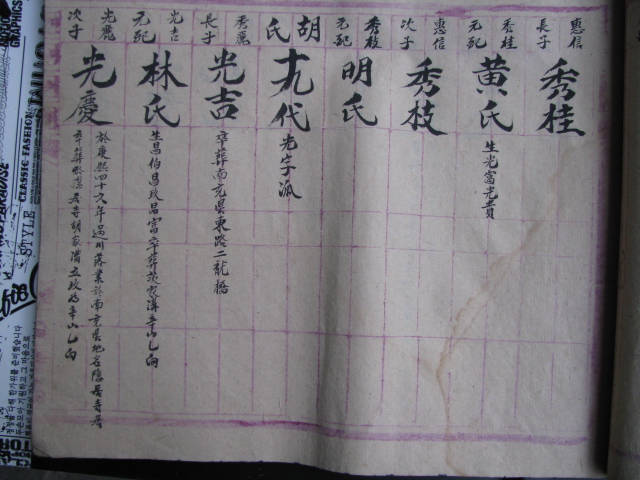 惠信
長子
秀桂
秀桂
元配
黃氏
生光富光貢
惠信
次子
秀枝
秀枝
元配
明氏
胡氏
十九代
光字派
秀麗
長子
光吉
卒葬南充县東路二龍橋
光吉
元配
林氏
生昌伯昌文昌富卒葬
山乙向
光麗
次子
光慶
於康熙四十六年過川落業於南充县地名隱居寺
卒葬隱居寺胡家溝立坟
山乙向
STYLE
CLASSIC FASHION
GRAPHICS